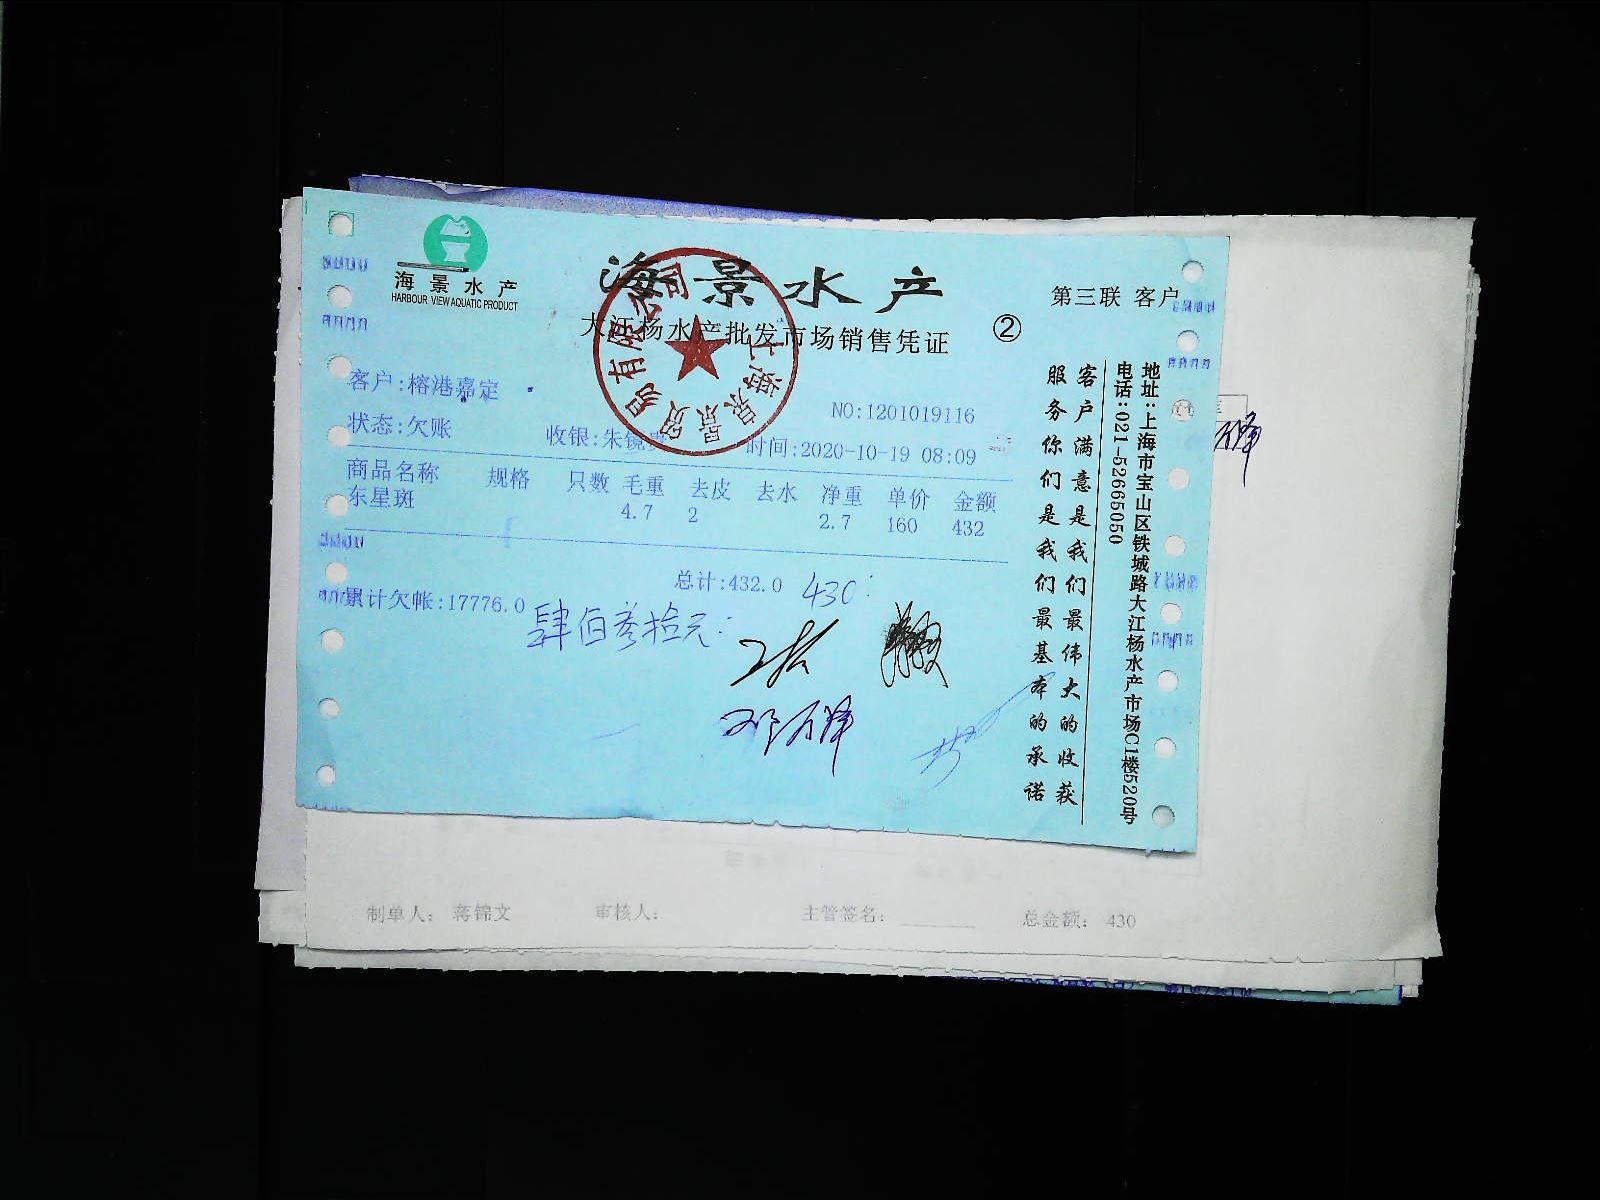 海景水产
HARBOUR VIEW AQUATIC PRODUCT
海景水产
第三联 客户
大江杨水产批发市场销售凭证
②
客户:榕港嘉定
NO:1201019116
状态:欠账 收银:朱镜 时间:2020-10-19 08:09
商品名称 规格 只数 毛重 去皮 去水 净重 单价 金额
东星斑 4.7 2 2.7 160 432
总计:432.0 430
累计欠帐:17776.0
肆佰叁拾元
客户满意是我们最伟大的收获
服务你们是我们最基本的承诺
地址:上海市宝山区铁城路大江杨水产市场C1楼520号
电话:021-52665050
制单人: 蒋锦文 审核人: 主管签名: 总金额: 430